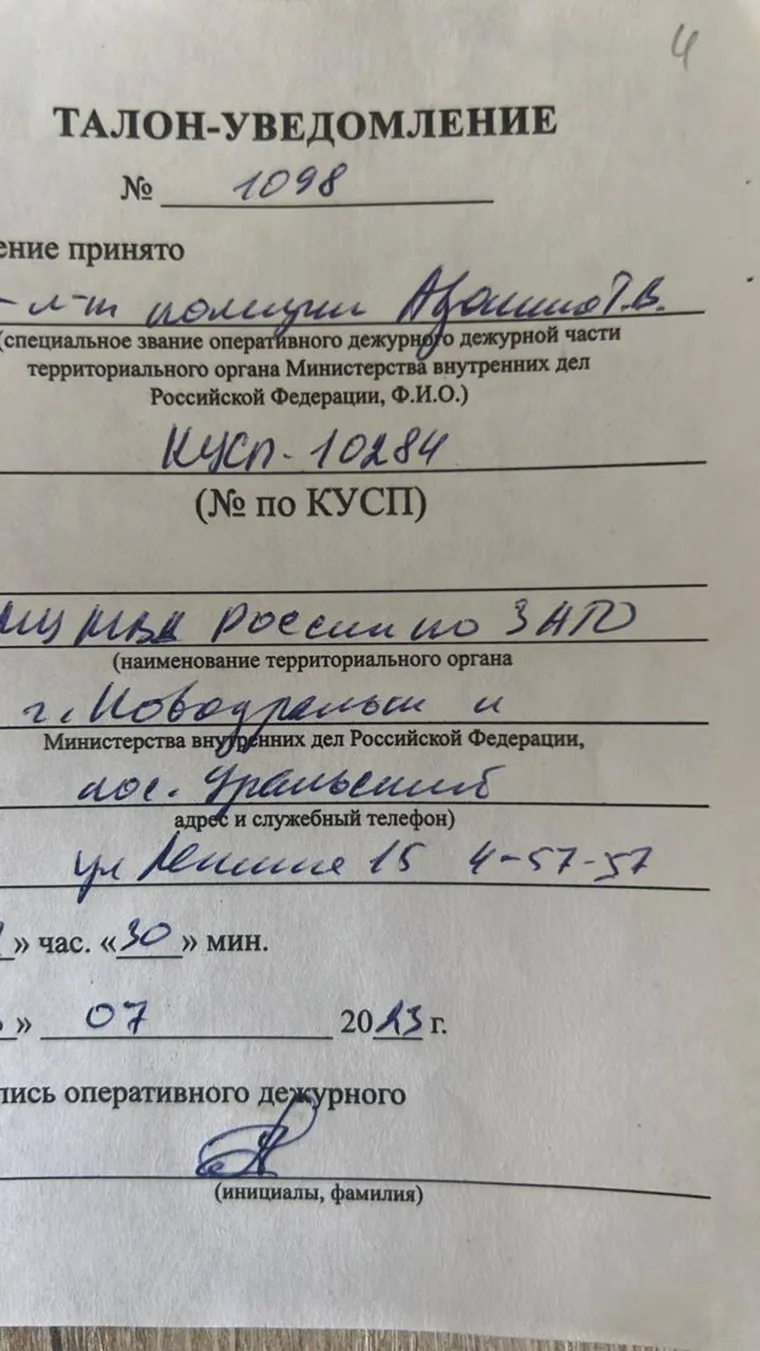 4
ТАЛОН-УВЕДОМЛЕНИЕ
№ 1098
ение принято
л-т полиции Т.В.
(специальное звание оперативного дежурного дежурной части
территориального органа Министерства внутренних дел
Российской Федерации, Ф.И.О.)
КУСП-10284
(№ по КУСП)
МВД России по ЗАТО
(наименование территориального органа
г. Новоуральск и
Министерства внутренних дел Российской Федерации,
пос. Уральский
адрес и служебный телефон)
ул Ленина 15 4-57-57
» час. «30» мин.
» 07 2023 г.
пись оперативного дежурного
(инициалы, фамилия)